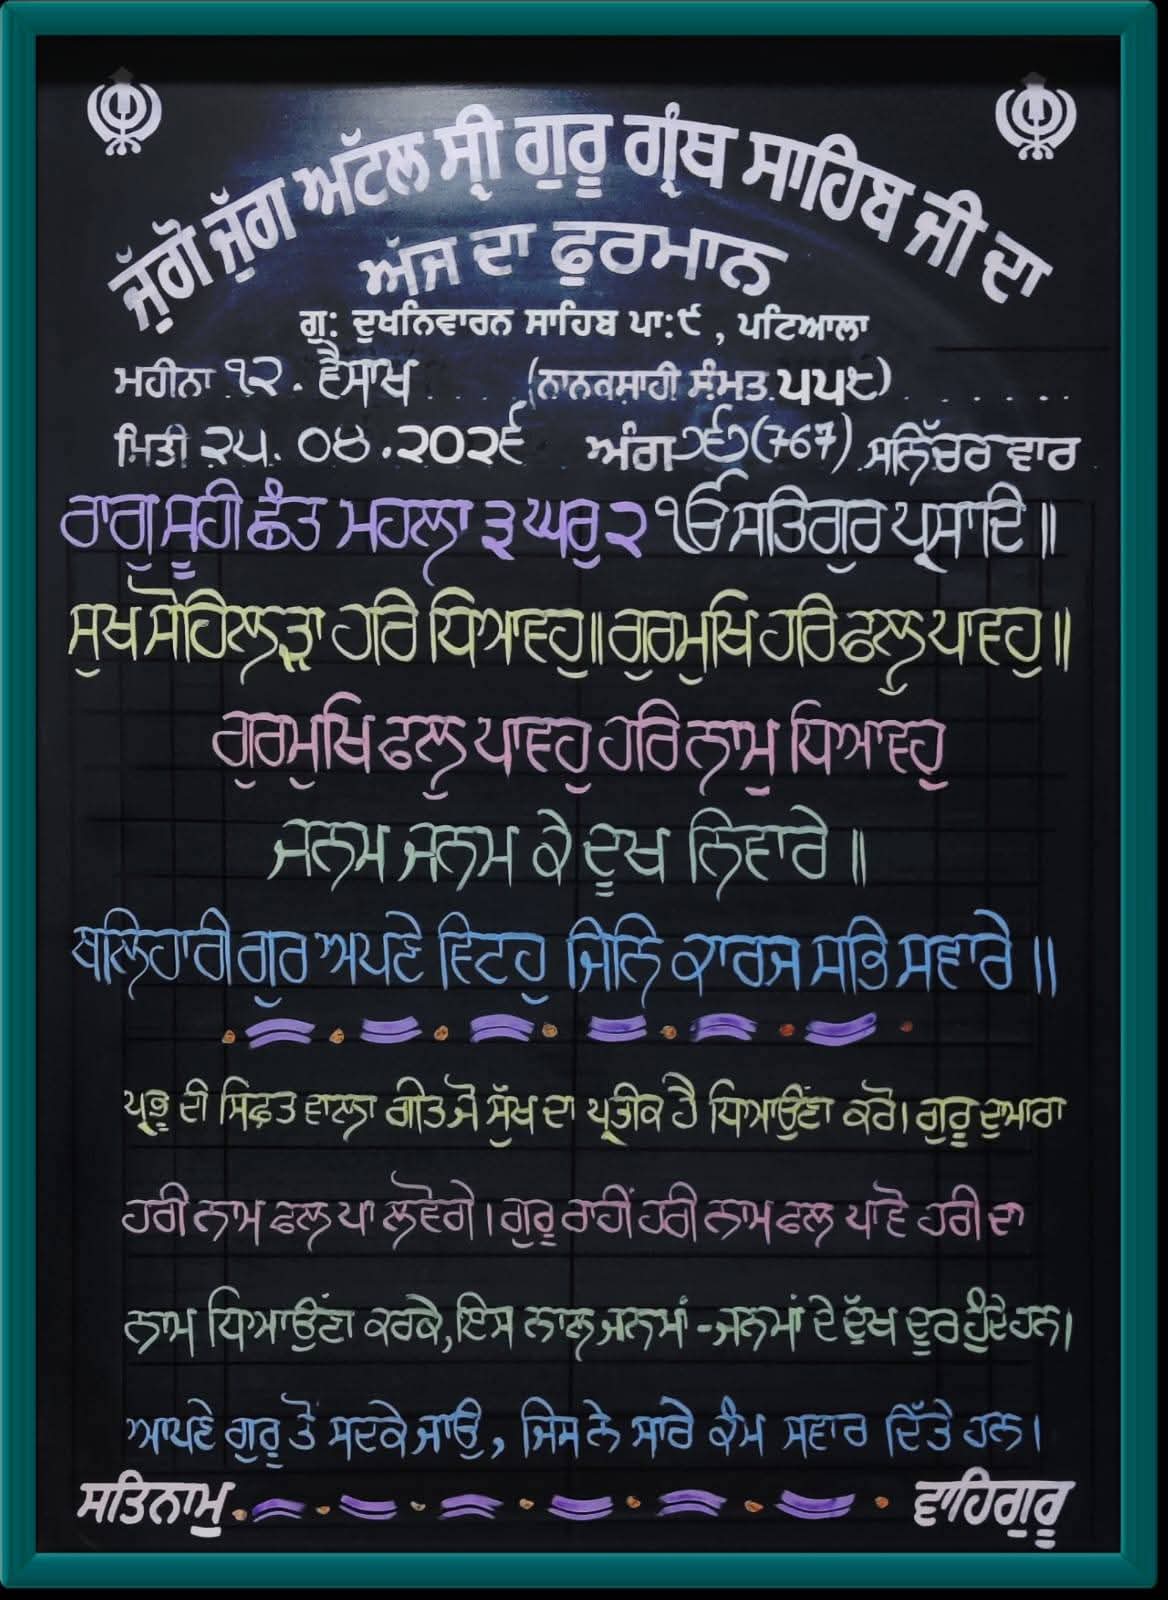 ਜੁੱਗੋ ਜੁੱਗ ਅੱਟਲ ਸ੍ਰੀ ਗੁਰੂ ਗ੍ਰੰਥ ਸਾਹਿਬ ਜੀ ਦਾ
ਅੱਜ ਦਾ ਫੁਰਮਾਨ
ਗੁ: ਦੁਖਨਿਵਾਰਨ ਸਾਹਿਬ ਪਾ:੯, ਪਟਿਆਲਾ
ਮਹੀਨਾ ੧੨. ਵੈਸਾਖ (ਨਾਨਕਸ਼ਾਹੀ ਸੰਮਤ ੫੫੮)
ਮਿਤੀ ੨੫. ੦੪.੨੦੨੬ ਅੰਗ ੭੬੭(767) ਸਨਿੱਚਰ ਵਾਰ
ਰਾਗੁ ਸੂਹੀ ਛੰਤ ਮਹਲਾ ੩ ਘਰੁ ੨ ੴ ਸਤਿਗੁਰ ਪ੍ਰਸਾਦਿ॥
ਸੁਖ ਸੋਹਿਲੜਾ ਹਰਿ ਧਿਆਵਹੁ॥ ਗੁਰਮੁਖਿ ਹਰਿ ਫਲੁ ਪਾਵਹੁ॥
ਗੁਰਮੁਖਿ ਫਲੁ ਪਾਵਹੁ ਹਰਿ ਨਾਮੁ ਧਿਆਵਹੁ
ਜਨਮ ਜਨਮ ਕੇ ਦੂਖ ਨਿਵਾਰੇ॥
ਬਲਿਹਾਰੀ ਗੁਰ ਅਪਣੇ ਵਿਟਹੁ ਜਿਨਿ ਕਾਰਜ ਸਭਿ ਸਵਾਰੇ॥
ਪ੍ਰਭੂ ਦੀ ਸਿਫ਼ਤ ਵਾਲਾ ਗੀਤ ਜੋ ਸੁੱਖ ਦਾ ਪ੍ਰਤੀਕ ਹੈ ਧਿਆਉਂਣਾ ਕਰੋ। ਗੁਰੂ ਦੁਆਰਾ
ਹਰੀ ਨਾਮ ਫਲ ਪਾ ਲਵੋਗੇ। ਗੁਰੂ ਰਾਹੀਂ ਹਰੀ ਨਾਮ ਫਲ ਪਾਵੋ ਹਰੀ ਦਾ
ਨਾਮ ਧਿਆਉਂਣਾ ਕਰਕੈ, ਇਸ ਨਾਲ ਜਨਮਾਂ-ਜਨਮਾਂ ਦੇ ਦੁੱਖ ਦੂਰ ਹੁੰਦੇ ਹਨ।
ਆਪਣੇ ਗੁਰੂ ਤੋਂ ਸਦਕੇ ਜਾਓ, ਜਿਸ ਨੇ ਸਾਰੇ ਕੰਮ ਸਵਾਰ ਦਿੱਤੇ ਹਨ।
ਸਤਿਨਾਮੁ ਵਾਹਿਗੁਰੂ